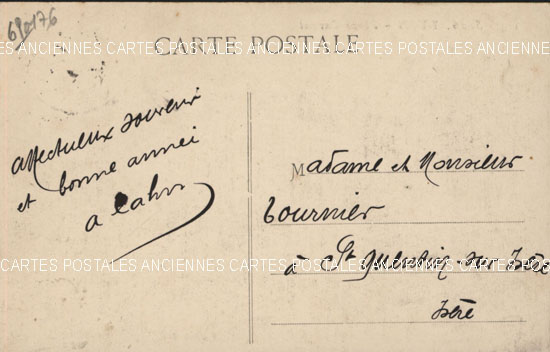 68176
CARTES POSTALES ANCIENNES CARTES POSTALES ANCIENNES CARTES POSTALES ANCIENNES
CARTE POSTALE
affectueux souvenir
et bonne année
Madame et Monsieur
Tournier
à St Quentin sur Isère
Isère
CARTES POSTALES ANCIENNES CARTES POSTALES ANCIENNES CARTES POSTALES ANCIENNES